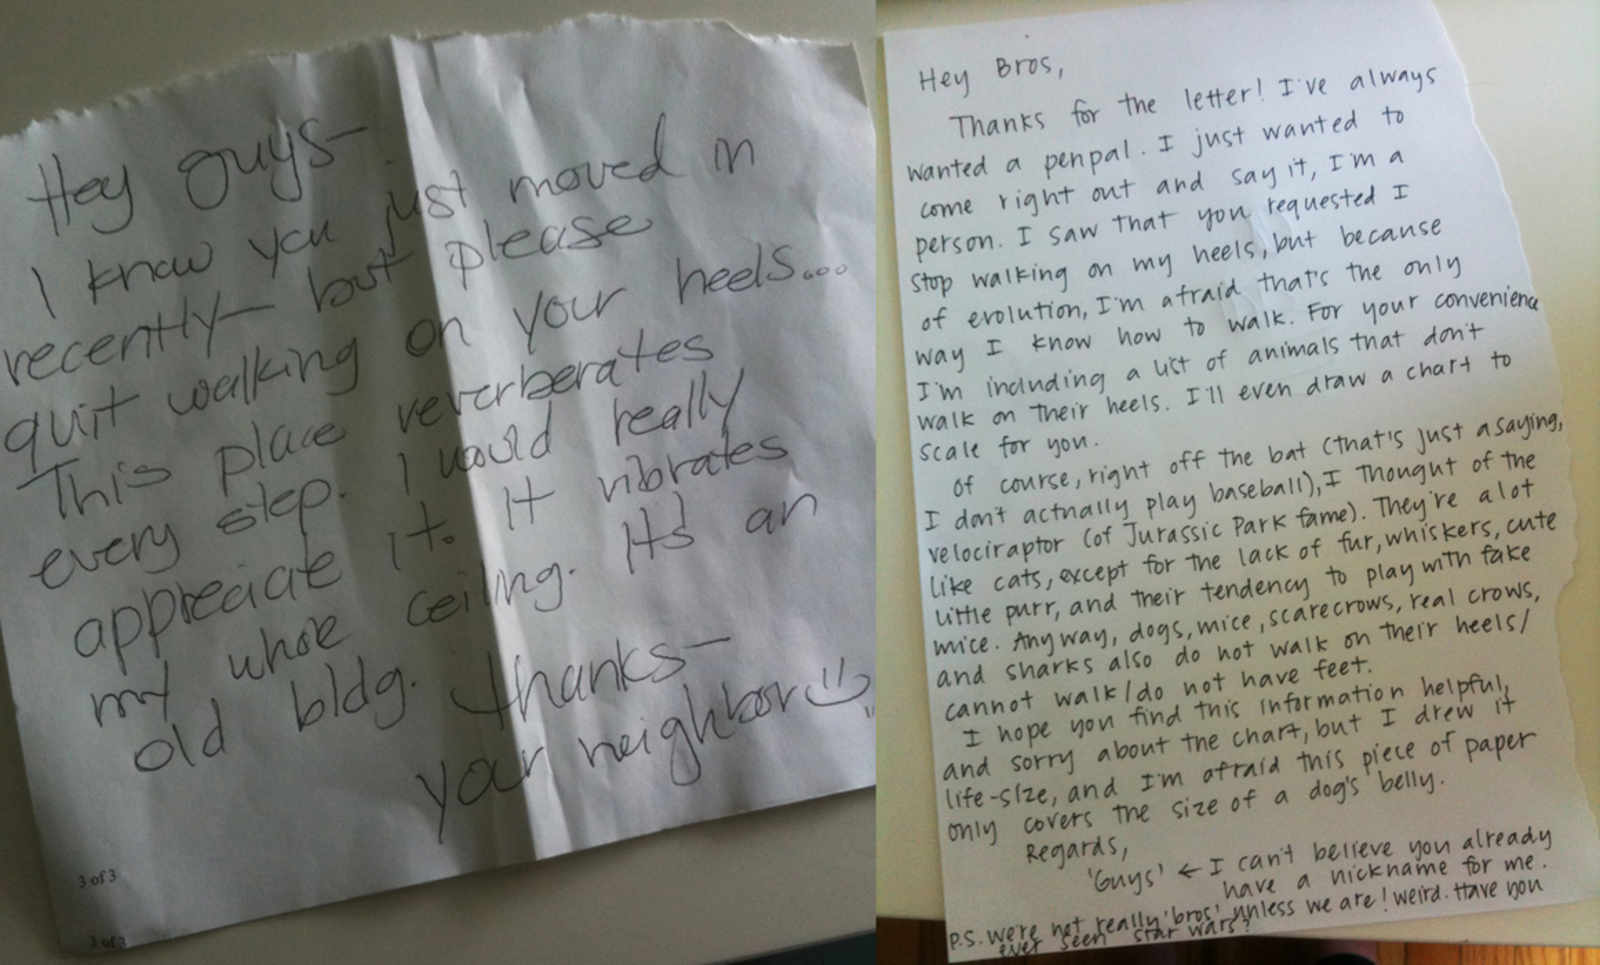 Hey guys—
I know you just moved in
recently— but please
quit walking on your heels...
This place reverberates
every step. I would really
appreciate it. It vibrates
my whole ceiling. It's an
old bldg. Thanks—
your neighbor
3 of 3
3 of 3
Hey Bros,
Thanks for the letter! I've always
wanted a penpal. I just wanted to
come right out and say it, I'm a
person. I saw that you requested I
stop walking on my heels, but because
of evolution, I'm afraid that's the only
way I know how to walk. For your convenience
I'm including a list of animals that don't
walk on their heels. I'll even draw a chart to
scale for you.
Of course, right off the bat (that's just a saying,
I don't actually play baseball), I thought of the
velociraptor (of Jurassic Park fame). They're a lot
like cats, except for the lack of fur, whiskers, cute
little purr, and their tendency to play with fake
mice. Anyway, dogs, mice, scarecrows, real crows,
and sharks also do not walk on their heels/
cannot walk/do not have feet.
I hope you find this information helpful,
and sorry about the chart, but I drew it
life-size, and I'm afraid this piece of paper
only covers the size of a dog's belly.
Regards,
'Guys' ← I can't believe you already
have a nickname for me.
P.S. we're not really 'bros' unless we are! weird. Have you
ever seen Star Wars?